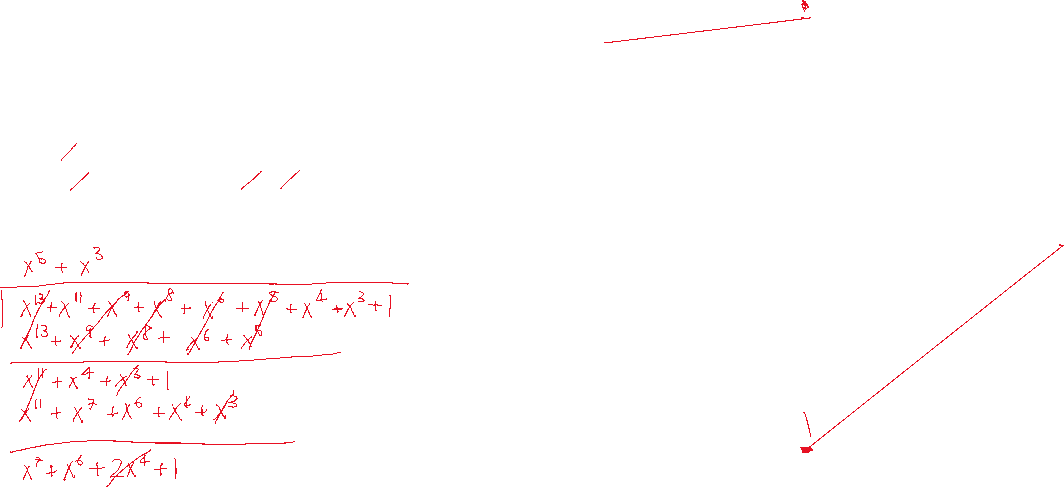 x⁵ + x³
x¹³ + x¹¹ + x⁹ + x⁸ + x⁶ + x⁵ + x⁴ + x³ + 1
x¹³ + x⁹ + x⁸ + x⁶ + x⁵
x¹¹ + x⁴ + x³ + 1
x¹¹ + x⁷ + x⁶ + x⁴ + x³
x⁷ + x⁶ + 2x⁴ + 1